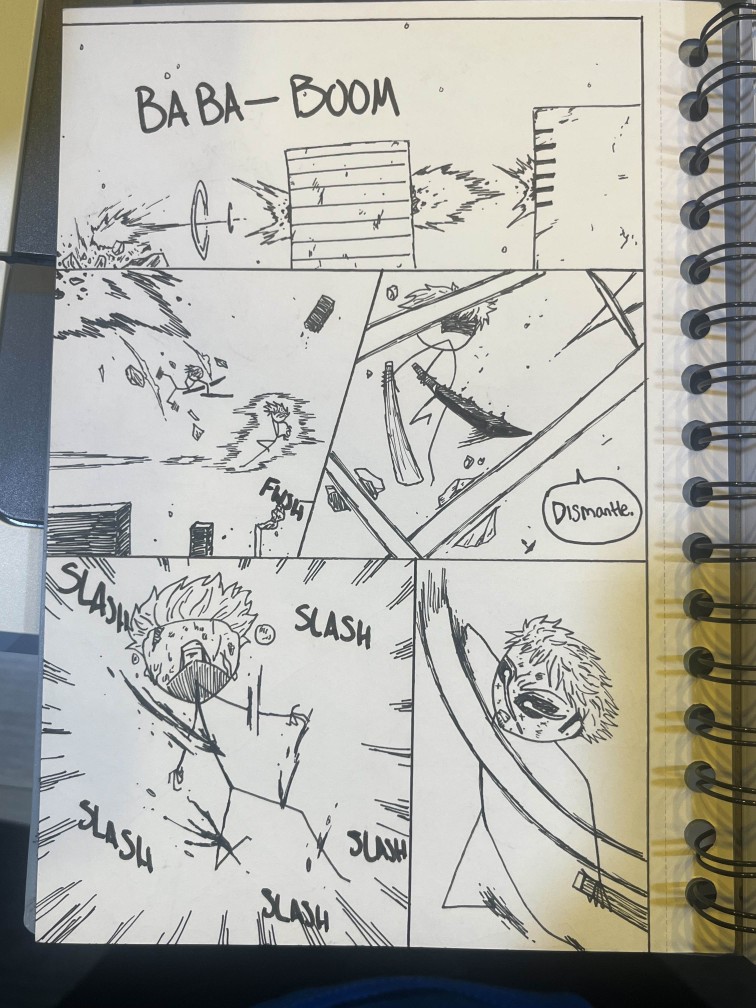 BABA-BOOM
FWSH
Dismantle.
SLASH
SLASH
SLASH
SLASH
SLASH